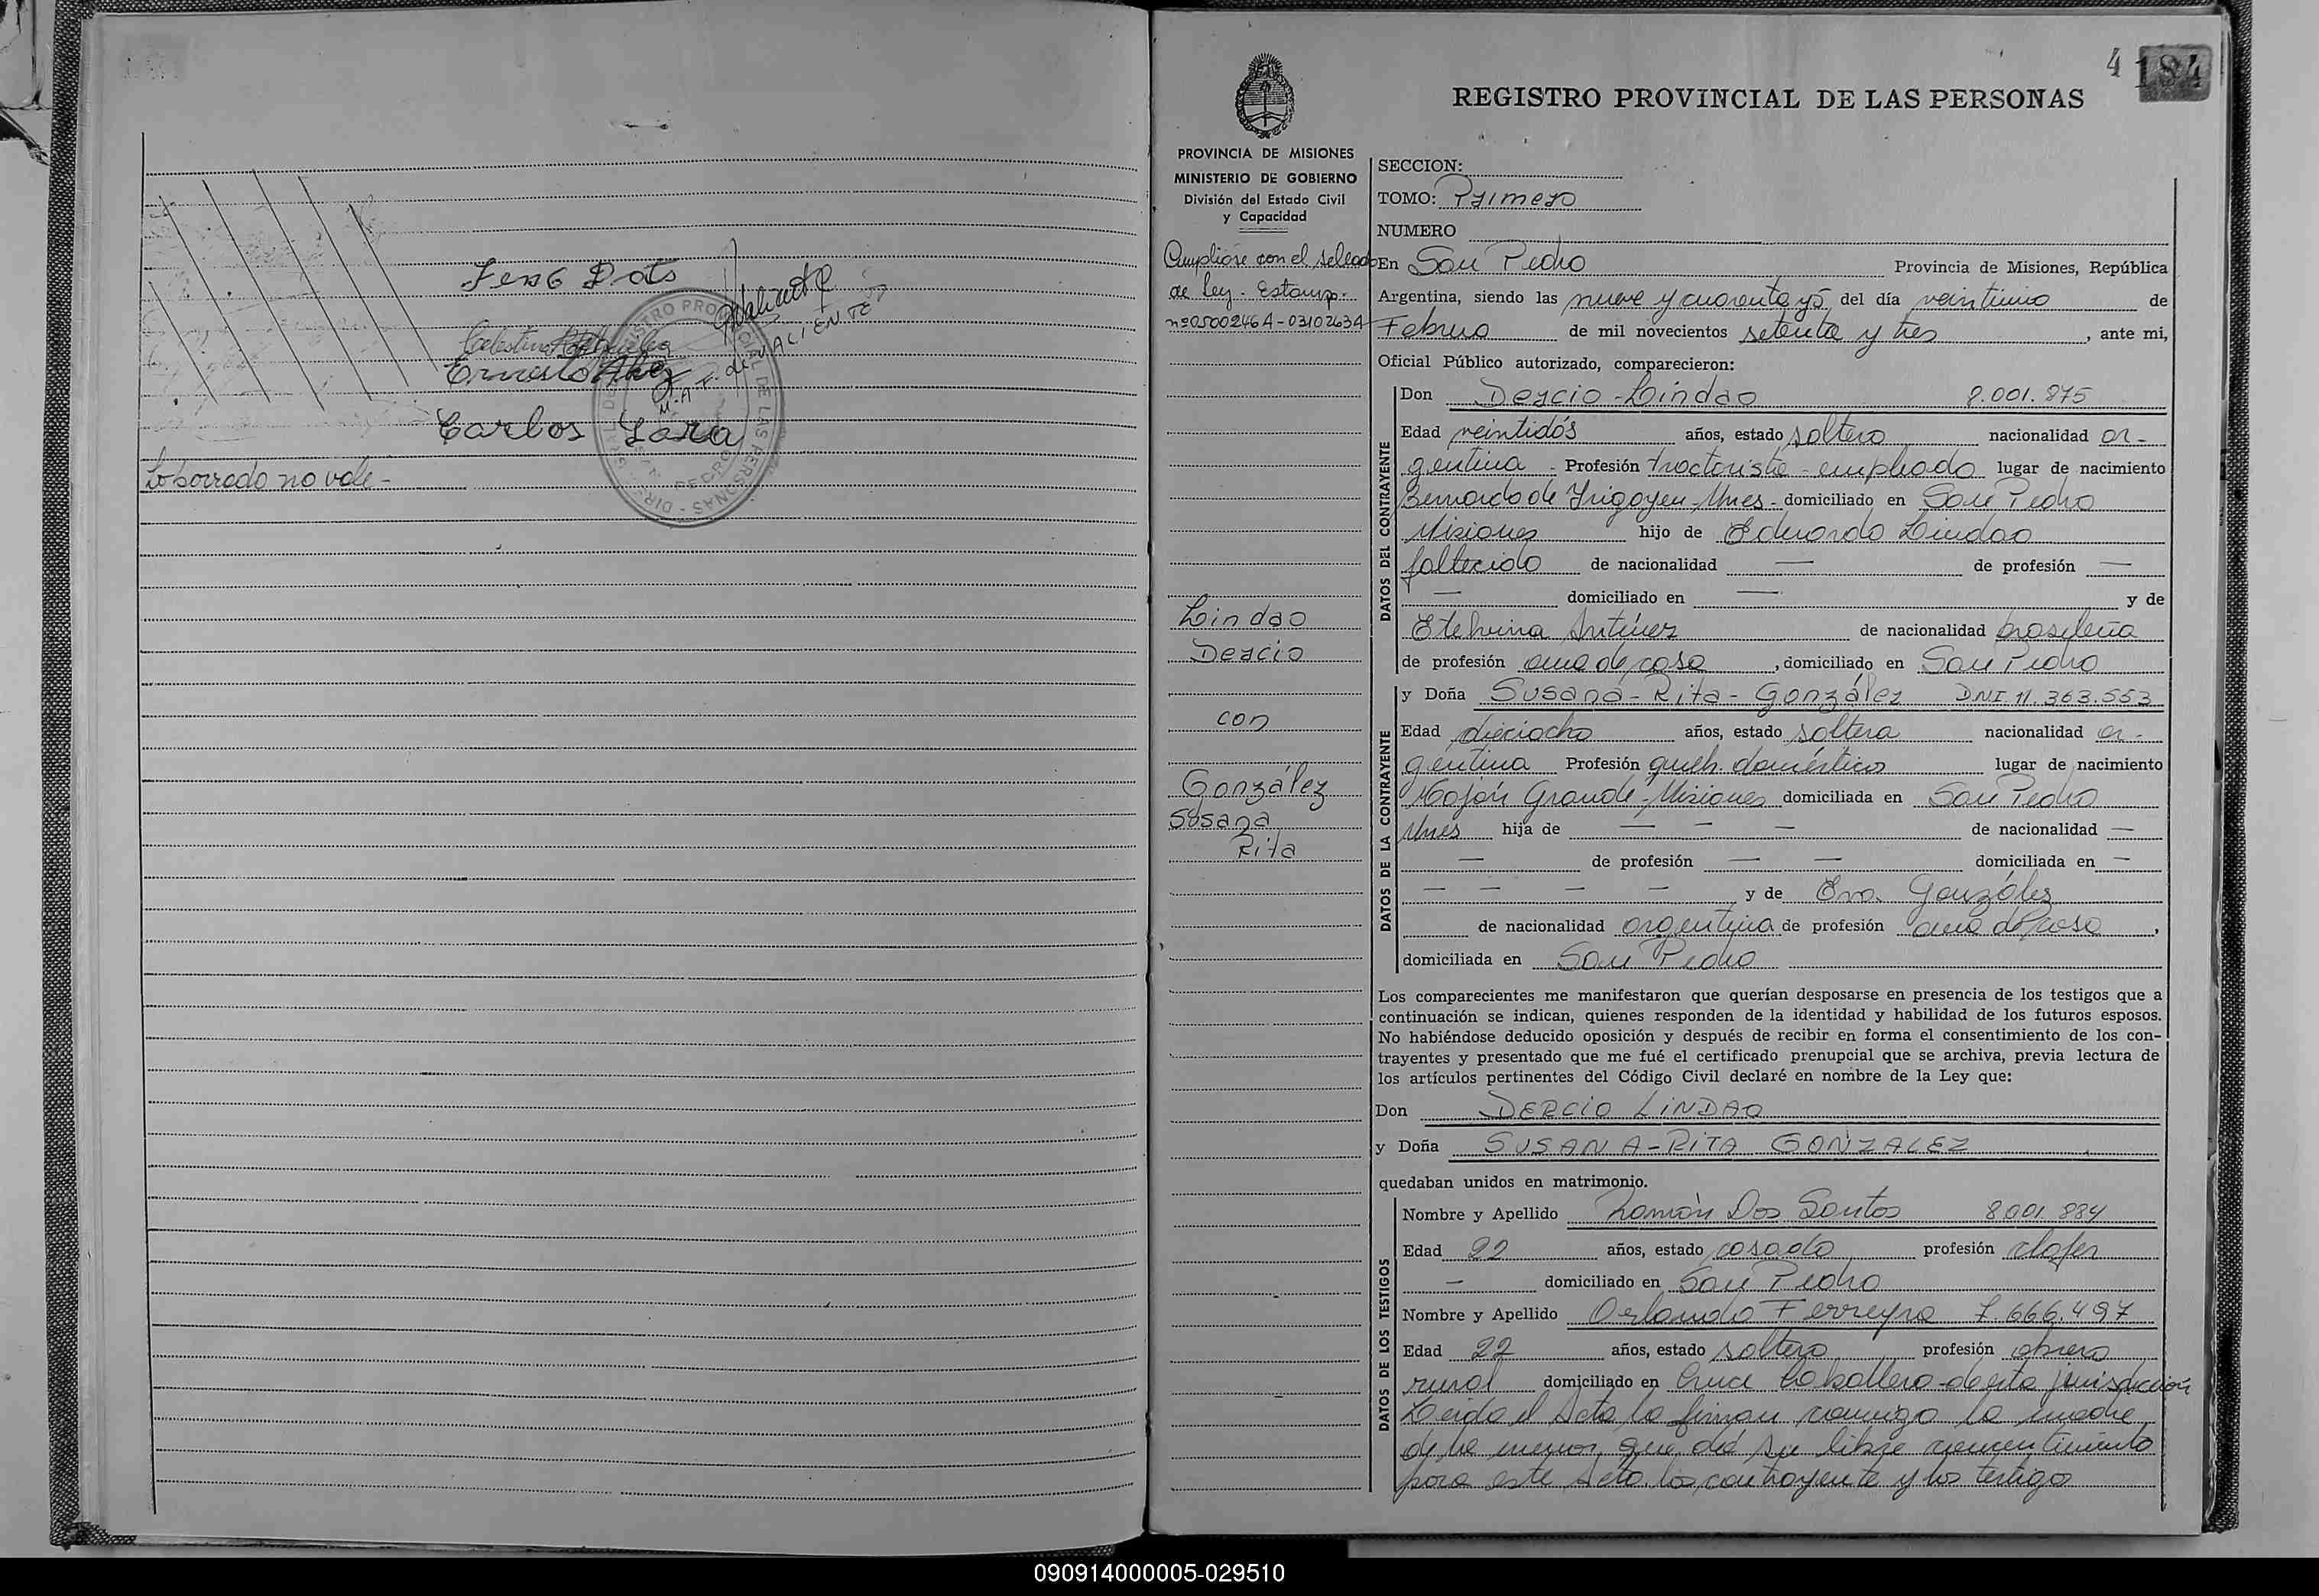 Celestino
Ernesto
Carlos Lara
MAT. de NACIENTES
Lo borrado no vale -
4 184
REGISTRO PROVINCIAL DE LAS PERSONAS
PROVINCIA DE MISIONES
MINISTERIO DE GOBIERNO
División del Estado Civil
y Capacidad
Ampliose con el sellado
de ley - Estamp.
nº 0500246A - 0310263A
Lindao
Dercio
con
González
Susana
Rita
SECCION:
TOMO: Primero
NUMERO
En San Pedro Provincia de Misiones, República
Argentina, siendo las nueve y cuarenta y 5 del día veintiuno de
Febrero de mil novecientos setenta y tres, ante mi,
Oficial Público autorizado, comparecieron:
DATOS DEL CONTRAYENTE
Don Dercio - Lindao 8.001.875
Edad veintidós años, estado soltero nacionalidad ar-
gentina - Profesión tractorista - empleado lugar de nacimiento
Bernardo de Irigoyen - Mnes - domiciliado en San Pedro
Misiones hijo de Eduardo Lindao
fallecido de nacionalidad — de profesión —
— domiciliado en — y de
Etelvina Antúnez de nacionalidad brasileña
de profesión ama de casa, domiciliado en San Pedro
DATOS DE LA CONTRAYENTE
y Doña Susana - Rita - González DNI. 11.363.553
Edad dieciocho años, estado soltera nacionalidad ar-
gentina Profesión queh. domésticos lugar de nacimiento
Mojón Grande - Misiones domiciliada en San Pedro
Mnes hija de — — — de nacionalidad —
— de profesión — — domiciliada en —
— — — — y de Eva González
de nacionalidad argentina de profesión ama de casa,
domiciliada en San Pedro
Los comparecientes me manifestaron que querían desposarse en presencia de los testigos que a
continuación se indican, quienes responden de la identidad y habilidad de los futuros esposos.
No habiéndose deducido oposición y después de recibir en forma el consentimiento de los con-
trayentes y presentado que me fué el certificado prenupcial que se archiva, previa lectura de
los artículos pertinentes del Código Civil declaré en nombre de la Ley que:
Don DERCIO LINDAO
y Doña SUSANA - RITA GONZALEZ
quedaban unidos en matrimonio.
DATOS DE LOS TESTIGOS
Nombre y Apellido Ramón Dos Santos 8001.884
Edad 22 años, estado casado profesión chofer
— domiciliado en San Pedro
Nombre y Apellido Orlando Ferreyra 7.666.497
Edad 22 años, estado soltero profesión obrero
rural domiciliado en Cruce Caballero - de esta jurisdicción
Leída el Acta la firman conmigo la madre
de la menor, que dá su libre consentimiento
para este Acto, los contrayente y los testigos
090914000005-029510